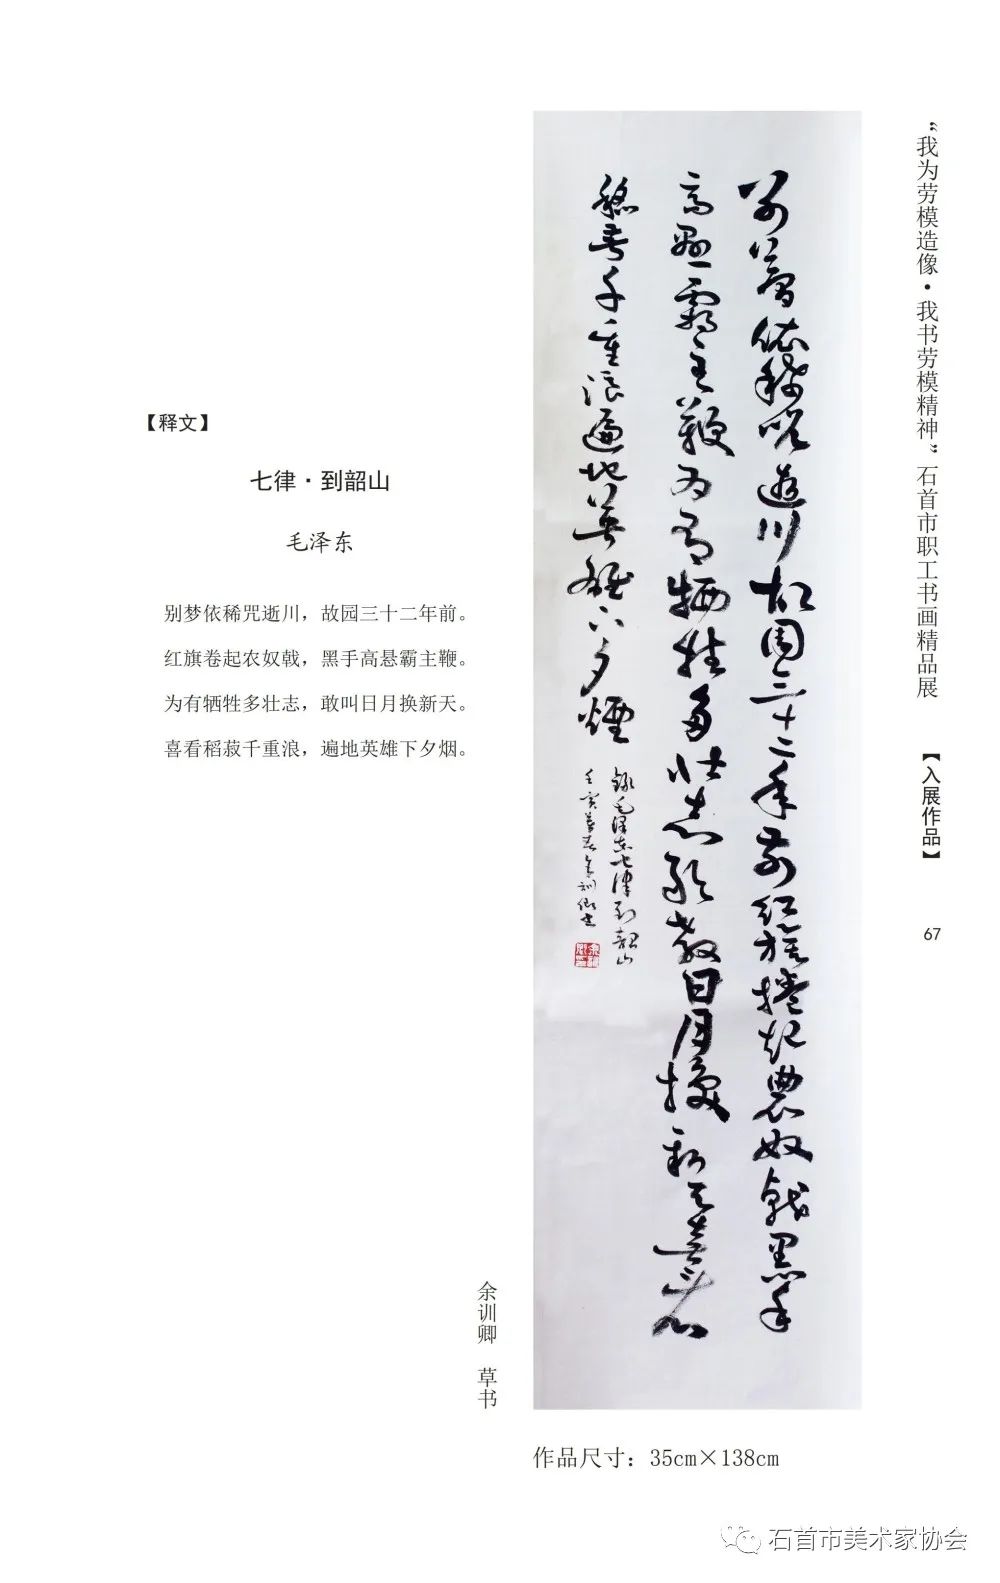 “我为劳模造像·我书劳模精神”石首市职工书画精品展
【入展作品】
67
别梦依稀咒逝川故园三十二年前红旗捲起農奴戟黑手
高悬霸主鞭为有牺牲多壮志敢教日月换新天喜看
稻菽千重浪遍地英雄下夕煙
录毛泽东七律到韶山
壬寅暮春余训卿书
【释文】
七律·到韶山
毛泽东
别梦依稀咒逝川，故园三十二年前。
红旗卷起农奴戟，黑手高悬霸主鞭。
为有牺牲多壮志，敢叫日月换新天。
喜看稻菽千重浪，遍地英雄下夕烟。
余训卿 草书
作品尺寸：35cm×138cm
石首市美术家协会